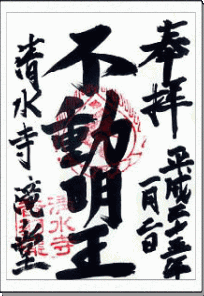 奉拝
平成二十五年
一月二日
不動明王
清水寺滝堂